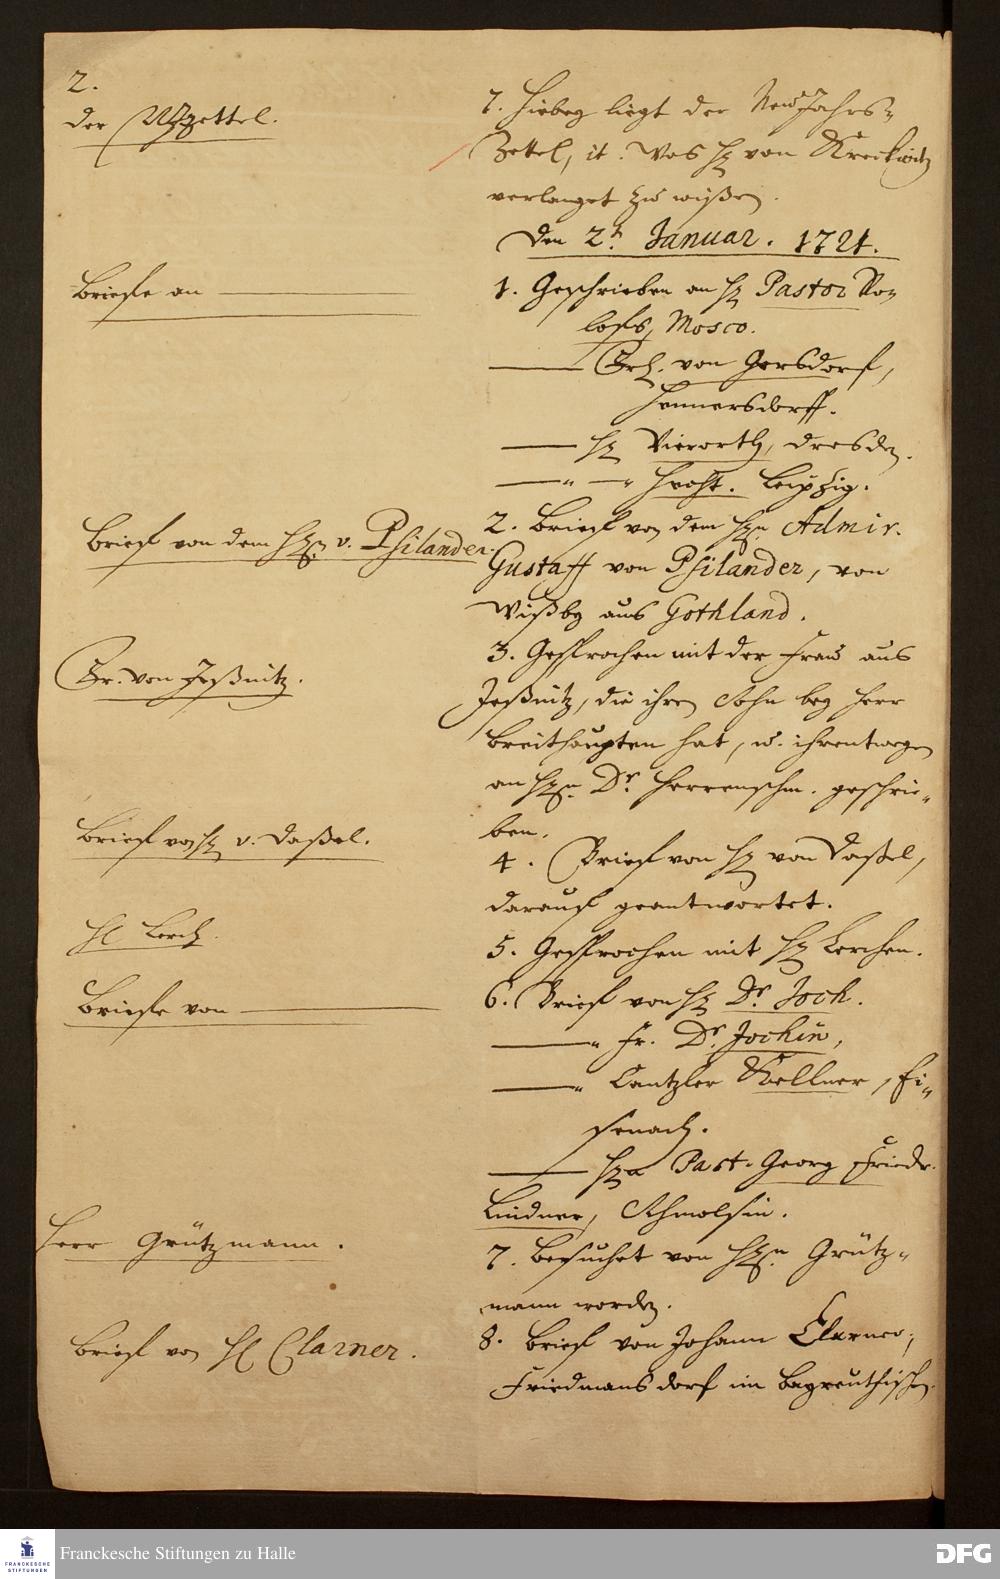 2.
der NJzettel.
7. Hiebey liegt der NeuJahrs-
Zettel, it. Was H. von Kreckwitz
verlanget zu wißen.
Den 2t. Januar. 1721.
Briefe an
1. Geschrieben an H. Pastor Ro-
loffs, Mosco.
Frl. von Gersdorf,
Hennersdorff.
H. Vierorth, Dresden.
" — " Leipzig.
Brief von dem HEn. v. Psilander.
2. Brief von dem HEn. Admir.
Gustaff von Psilander, von
Wißby aus Gothland.
Fr. von Jeßnitz.
3. Gesprochen mit der Frau aus
Jeßnitz, die ihren Sohn bey Herr
Breithaupten hat, u. ihrentwegen
an HEn. Dr. Herrenschm. geschrie-
ben.
Brief von H. v. Daßel.
4. Brief von H. von Daßel,
darauf geantwortet.
H. Lerch.
5. Gesprochen mit H. Lerchen.
Briefe von
6. Brief von H. Dr. Joch.
" Fr. Dr. Jochin,
" Cantzler Kellner, Ei-
senach.
HEn Past. Georg Friedr.
Lindner, Schmolsin.
Herr Grützmann.
7. Besuchet von HEn. Grütz-
mann worden.
Brief von H. Clarner.
8. Brief von Johann Clarner,
Friedmansdorf im Bayreuthischen.
Franckesche Stiftungen zu Halle
FRANCKESCHE
STIFTUNGEN
DFG